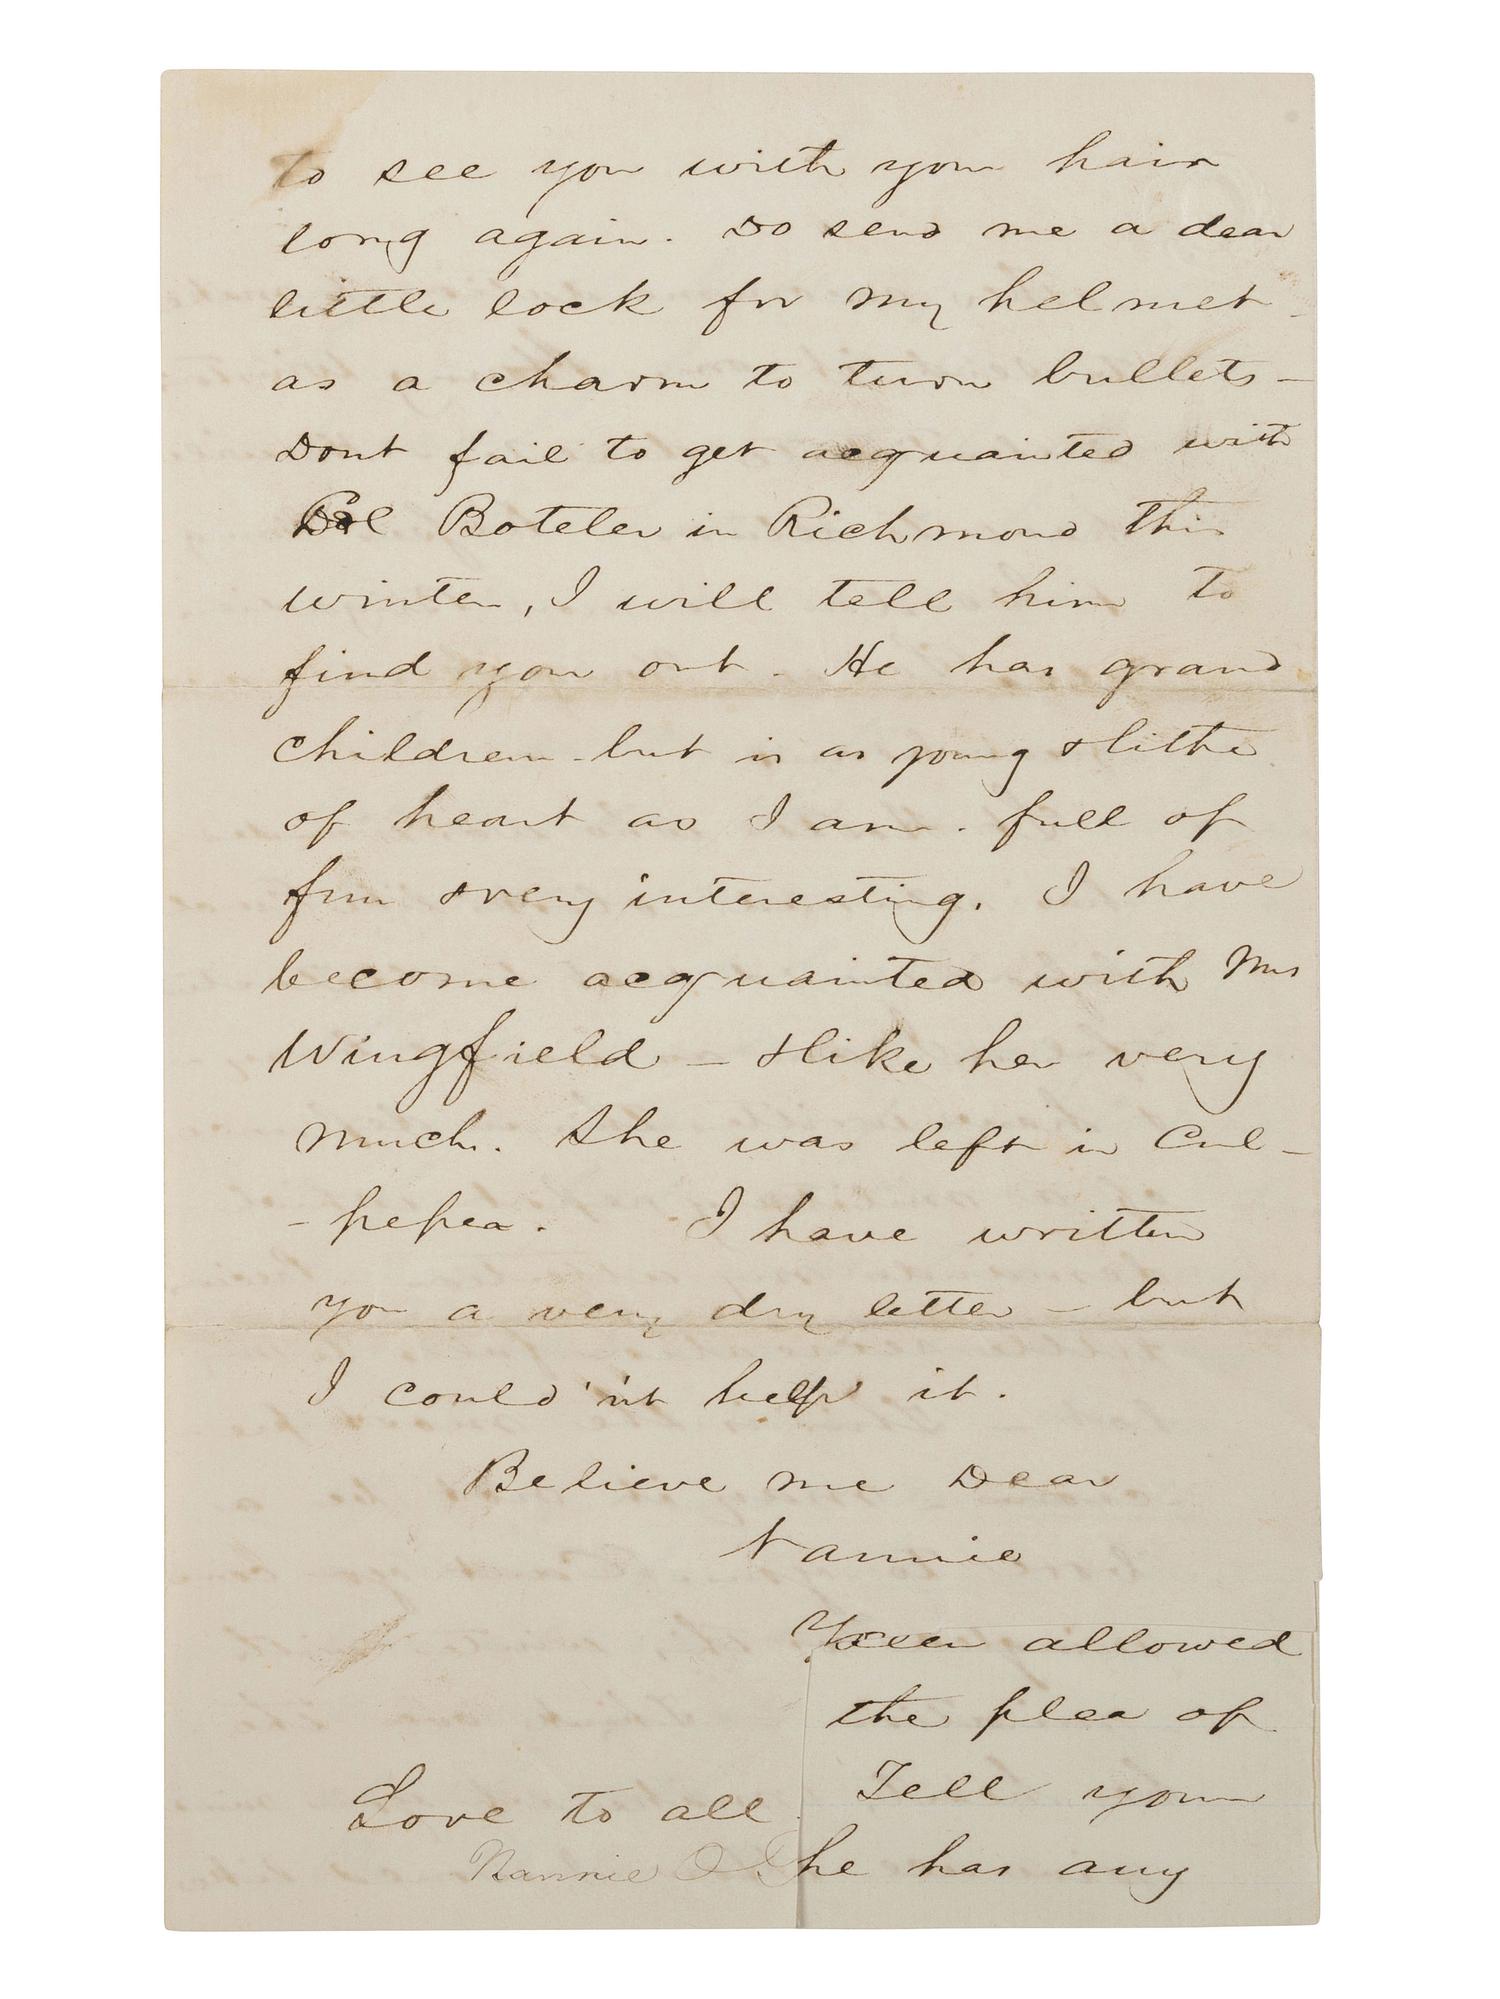 to see you with your hair
long again. Do send me a dear
little lock for my helmet -
as a charm to turn bullets -
Dont fail to get acquainted with
Col Boteler in Richmond this
winter, I will tell him to
find you out. He has grand
children - but is as young & lithe
of heart as I am. full of
fun & very interesting. I have
become acquainted with Mrs
Wingfield - & like her very
much. She was left in Cul-
-peper. I have written
you a very dry letter - but
I could'nt help it.
Believe me Dear
Nannie
been allowed
the plea of
Tell your
Love to all
Nannie O
he has any